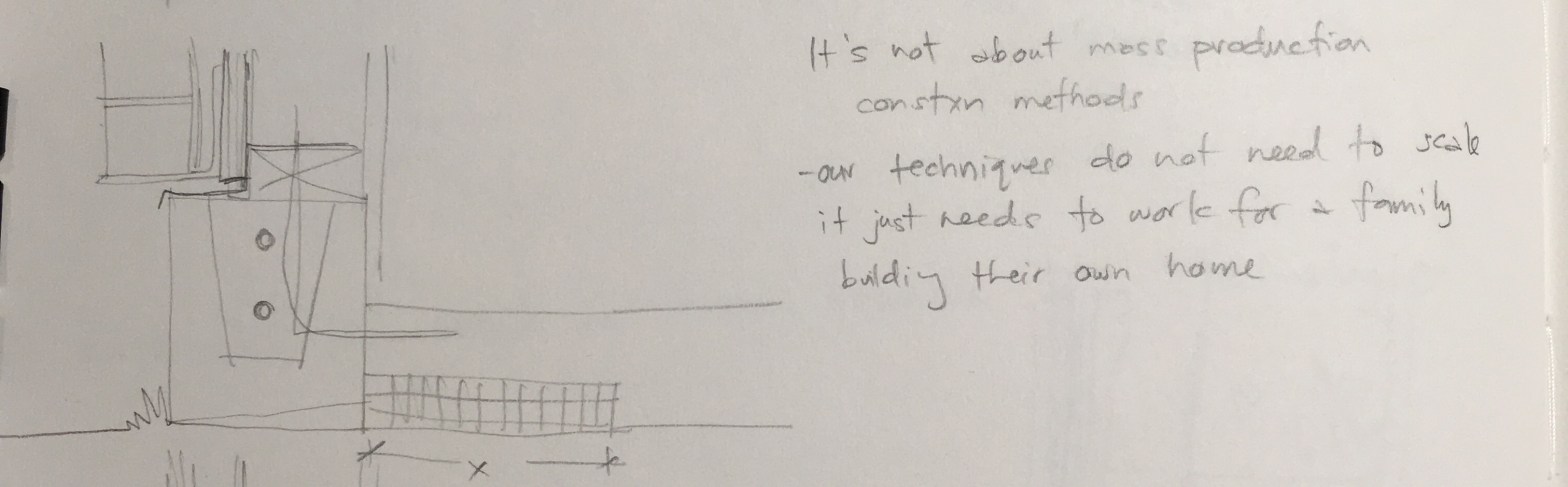 It's not about mass production
constxn methods
-our techniques do not need to scale
it just needs to work for a family
buildiy their own home
x